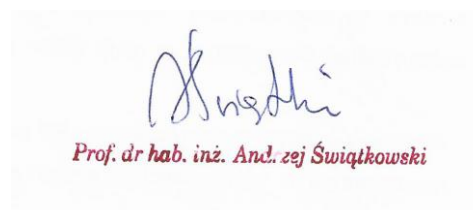 Prof. dr hab. inż. And. zej Świątkowski